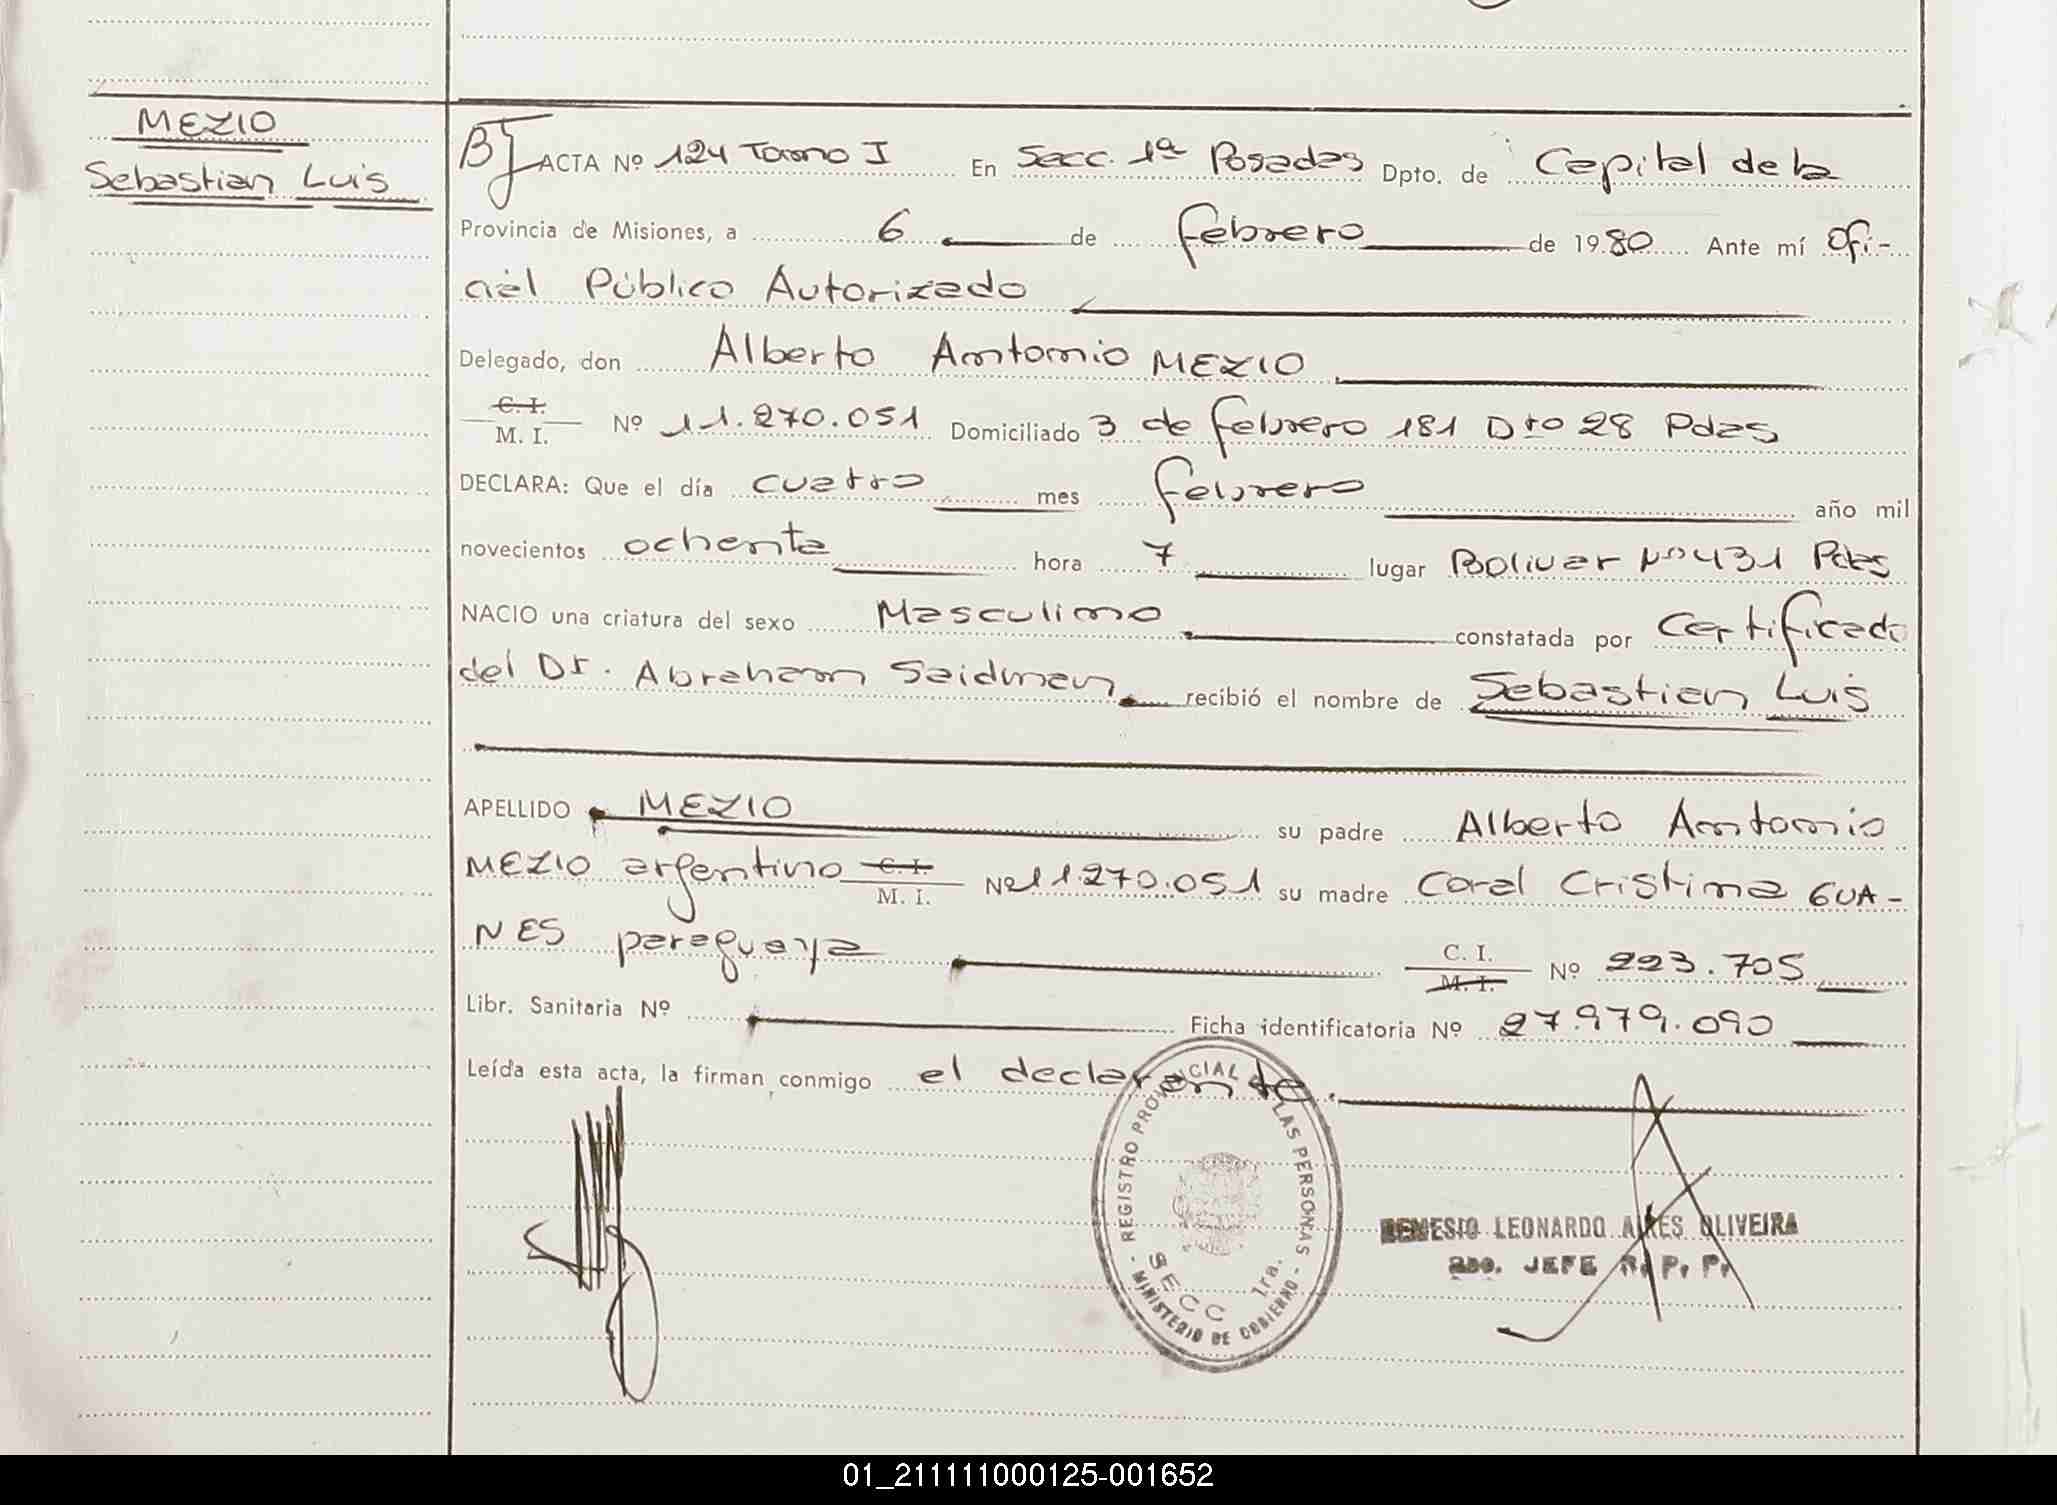 MEZIO
Sebastian Luis
ACTA Nº 124 Tomo I En Secc. 1ª Posadas Dpto. de Capital de la
Provincia de Misiones, a 6 de febrero de 1980 Ante mí Ofi-
cial Público Autorizado
Delegado, don Alberto Antonio MEZIO
C. I.
M. I. Nº 11.270.051 Domiciliado 3 de febrero 181 Dto 28 Pdas
DECLARA: Que el día cuatro mes febrero año mil
novecientos ochenta hora 7 lugar Bolivar Nº 431 Pdas
NACIO una criatura del sexo Masculino constatada por Certificado
del Dr. Abraham Saidman recibió el nombre de Sebastian Luis
APELLIDO MEZIO su padre Alberto Antonio
MEZIO argentino C. I. M. I. Nº 11.270.051 su madre Coral Cristina GUA-
NES paraguaya C. I. M. I. Nº 223.705
Libr. Sanitaria Nº Ficha identificatoria Nº 27.979.090
Leída esta acta, la firman conmigo el declarante.
REGISTRO PROVINCIAL LAS PERSONAS
SECC 1ra.
MINISTERIO DE GOBIERNO
NEMESIO LEONARDO AIRES OLIVEIRA
2do. JEFE R. P. P.
01_211111000125-001652